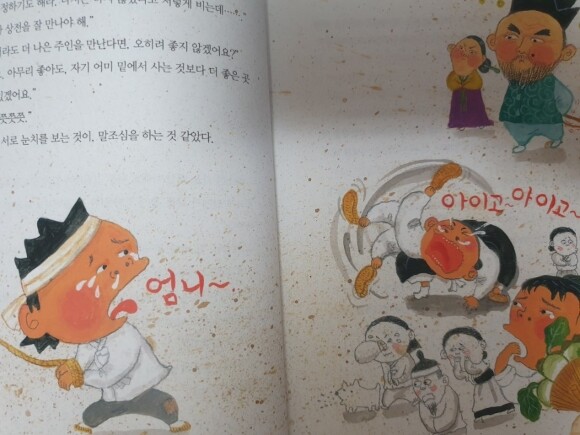 상전을 잘 만나야 해."
라도 더 나은 주인을 만난다면, 오히려 좋지 않겠어요?"
아무리 좋아도, 자기 어미 밑에서 사는 것보다 더 좋은 곳
겠어요."
쯧쯧쯧."
서로 눈치를 보는 것이, 말조심을 하는 것 같았다.
엄니~
아이고~아이고~